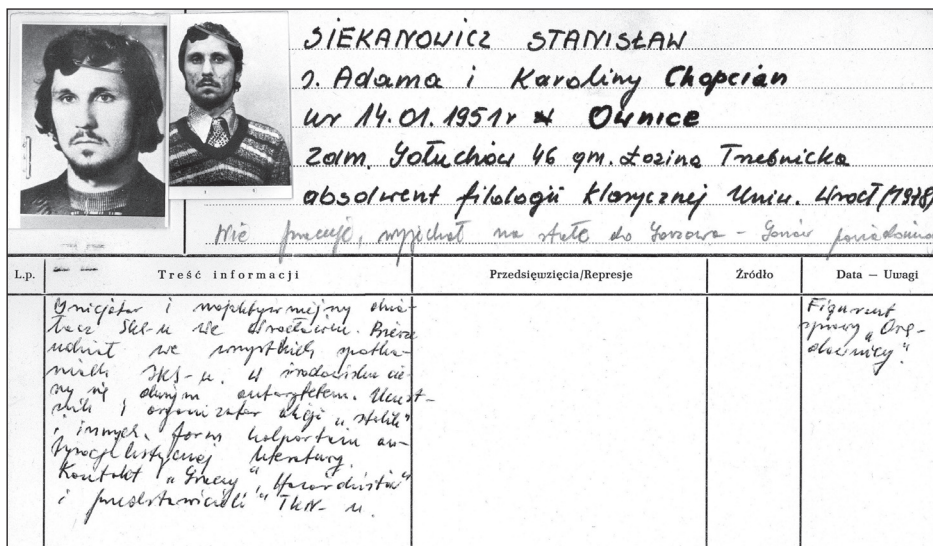 SIEKANOWICZ STANISŁAW
s. Adama i Karoliny Chopcian
ur 14.01.1951r w Ownice
zam. Gołuchów 46 gm. Łozina Trzebnicka
absolwent filologii klasycznej Uniw. Wrocł (1978)
Nie pracuje, wyjechał na stałe do Gorzowa – Gorzów
L.p.
Treść informacji
Przedsięwzięcia/Represje
Źródło
Data — Uwagi
Inicjator i najaktywniejszy dzia-
łacz SKS-u we Wrocławiu. Bierze
udział we wszystkich spotka-
niach SKS-u. W środowisku cie-
szy się dużym autorytetem. Uczest-
nik i organizator akcji „stolik"
i innych form kolportażu an-
tysocjalistycznej literatury.
Kontakt „Graczy", „Hazardzistów"
i przedstawicieli TKN-u.
Figurant
sprawy „Orę-
downicy".